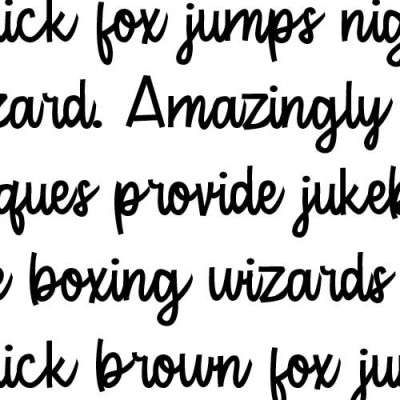 ick fox jumps nig
zard. Amazingly
ques provide jukeb
e boxing wizards
ick brown fox ju